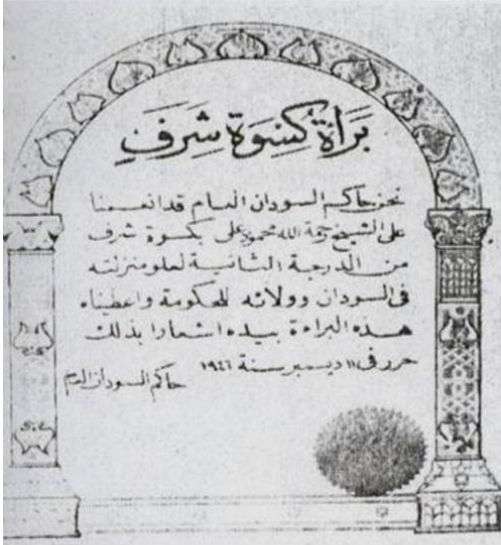 بَرَاةُ كِسْوَةِ شَرَفٍ
نحن حاكم السودان العام قد انعمنا
على الشيخ رحمة الله محمود على بكسوة شرف
من الدرجة الثانية لعلو منزلته
فى السودان وولائه للحكومة واعطيناه
هذه البراءة بيده اشعارا بذلك
حرر فى ١١ ديسمبر سنة ١٩٤٦
حاكم السودان العام